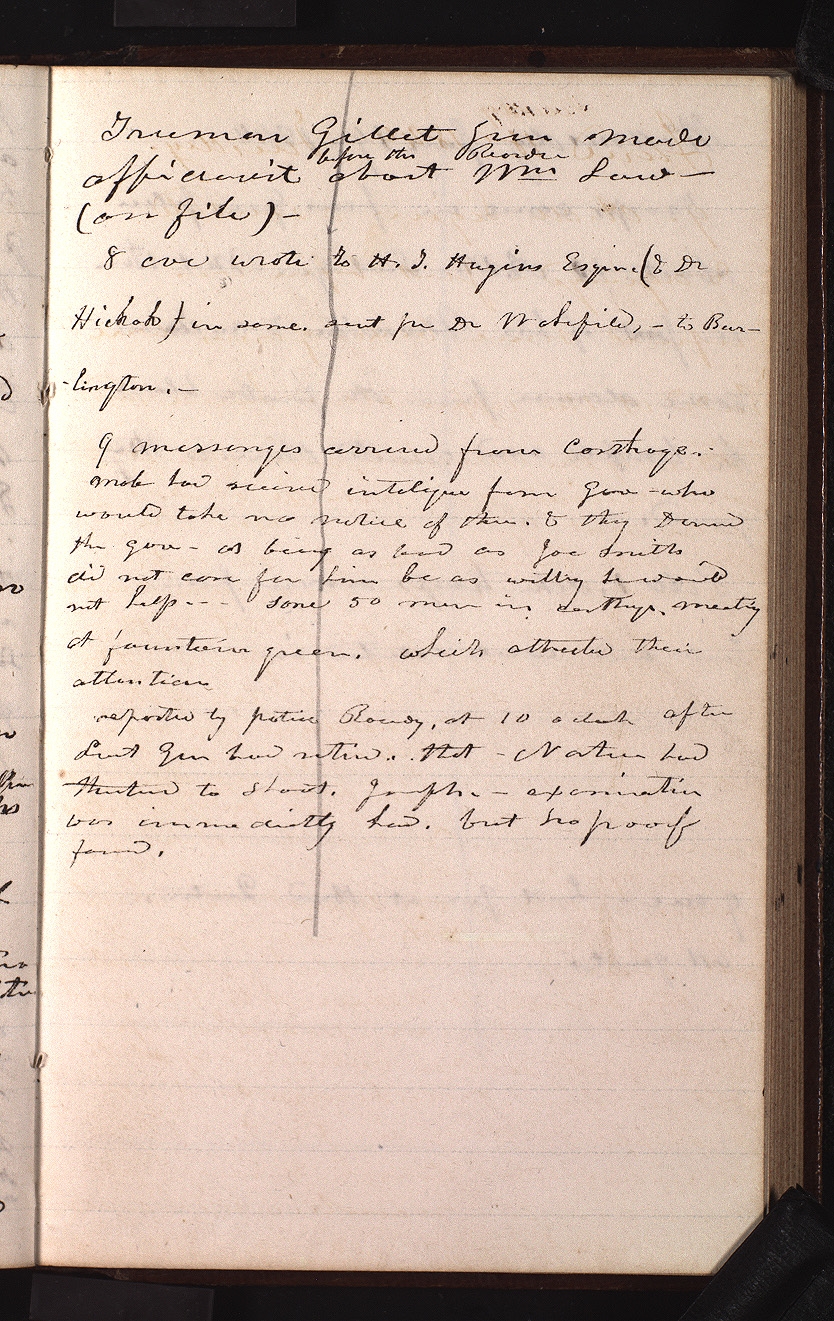 Trueman Gillet Jun made
before the Recorder
affidavit about Wm Law—
(on file)—
8 eve wrote to H. T. Hugins Esqr. (& Dr
Hickok) in same. sent per Dr Wakefild, — to Bur—
-lington. —
9 messenges arrived from Carthage.
mob had receivd intelignce from Gov— who
would take no notice of them. & they Damnd
the gov— as being as bad as Joe Smith
did not care for him he as willig he would
not help— — some 50 men in carthage. meeting
at fountain green. which attracted their
attention
reported by police Rowdy, at 10 o clock after
Lieut Gen had retird. that — Norton had
thretend to shoot. Joseph. — examination
was immediatly had. but no proof
found.